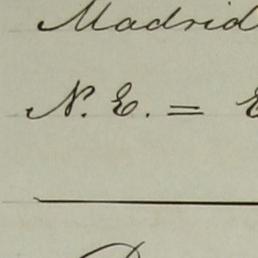 Madrid
N. E. =